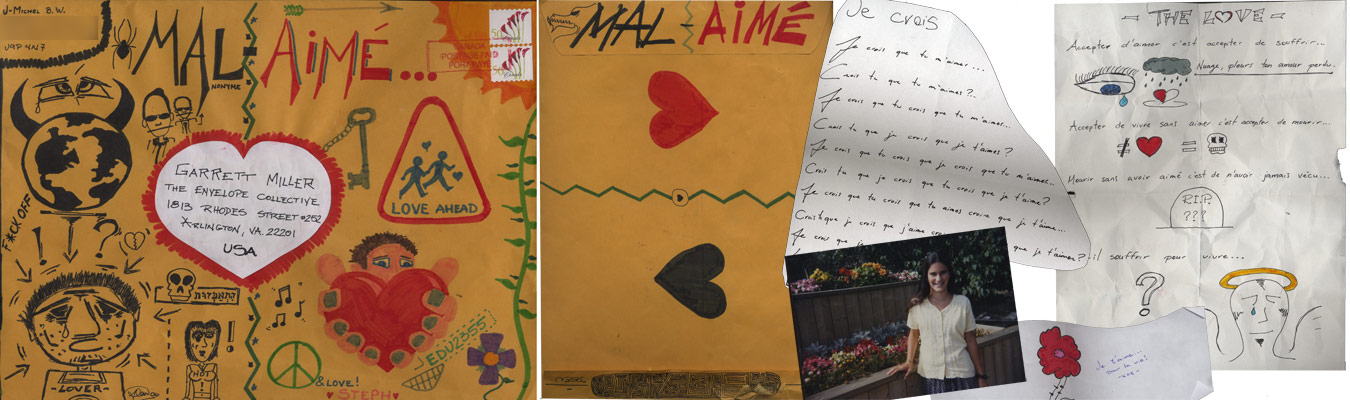 J-MICHEL B.W.
J9P 4N7
MAL AIMÉ...
NONYME
CANADA
POSTAGE PAID
GARRETT MILLER
THE ENVELOPE COLLECTIVE
1813 RHODES STREET #252
ARLINGTON, VA. 22201
USA
LOVE AHEAD
F*CK OFF
! ! ?
-LOVER-
HOT
!
& LOVE!
STEPH
EDU2355
MAL AIMÉ
Je crois
Je crois que tu m'aimes...
Crois tu que je m'aimes?..
Je crois que tu crois que tu m'aimes...
Crois tu que je crois que je t'aimes?
Je crois que tu crois que je crois que tu m'aimes...
Crois tu que je crois que tu crois que je t'aimes?
Je crois que tu crois que tu aimes croire que je t'aime...
Je crois que je
que je t'aimes?
THE LOVE
Accepter d'aimer c'est accepter de souffrir...
Nuage, pleurs ton amour perdu.
Accepter de vivre sans aimer c'est accepter de mourir...
≠ =
Mourir sans avoir aimé c'est de n'avoir jamais vécu...
R.I.P.
???
il souffrir pour vivre...
?
Je t'aime...
pour la vie!